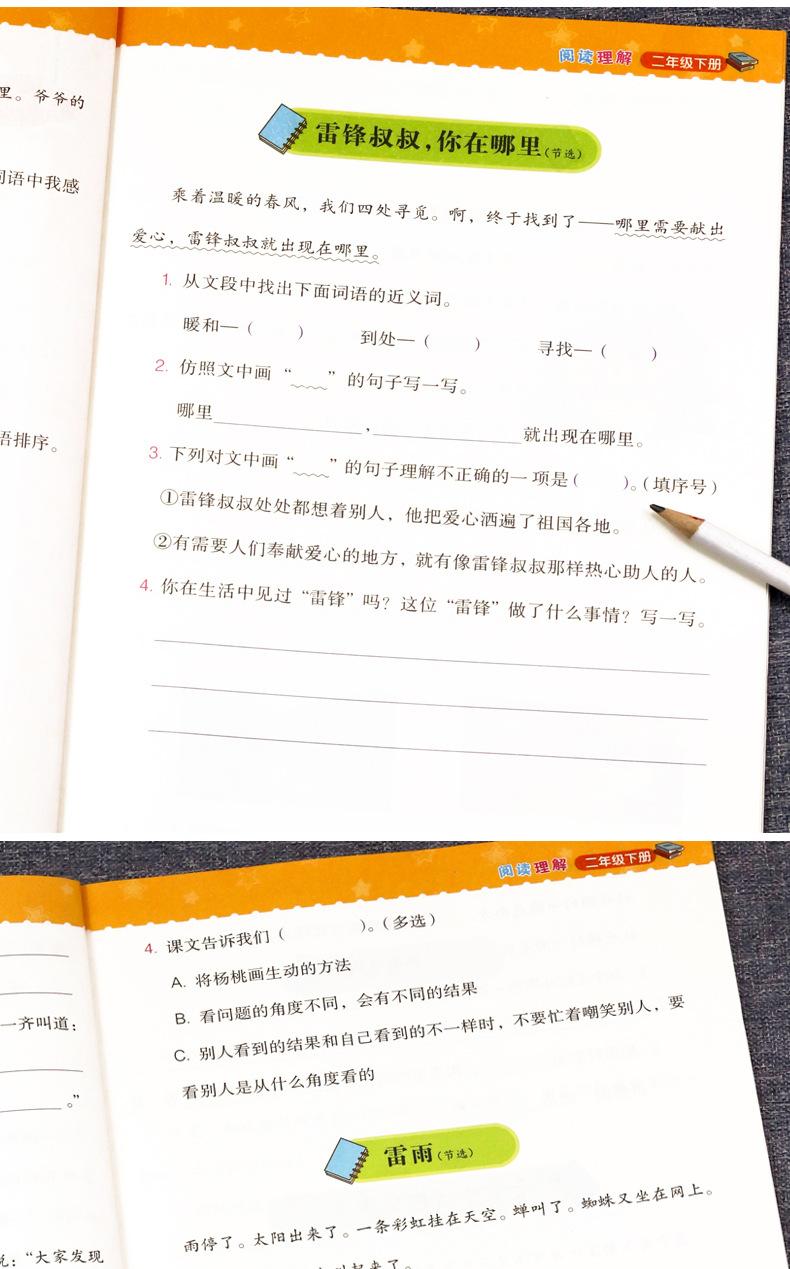 阅读理解 二年级下册
里。爷爷的
词语中我感
语排序。
雷锋叔叔，你在哪里（节选）
乘着温暖的春风，我们四处寻觅。啊，终于找到了——哪里需要献出
爱心，雷锋叔叔就出现在哪里。
1. 从文段中找出下面词语的近义词。
暖和—（ ） 到处—（ ） 寻找—（ ）
2. 仿照文中画“ ”的句子写一写。
哪里 ， 就出现在哪里。
3. 下列对文中画“ ”的句子理解不正确的一项是（ ）。（填序号）
①雷锋叔叔处处都想着别人，他把爱心洒遍了祖国各地。
②有需要人们奉献爱心的地方，就有像雷锋叔叔那样热心助人的人。
4. 你在生活中见过“雷锋”吗？这位“雷锋”做了什么事情？写一写。
阅读理解 二年级下册
一齐叫道：
。”
说：“大家发现
4. 课文告诉我们（ ）。（多选）
A. 将杨桃画生动的方法
B. 看问题的角度不同，会有不同的结果
C. 别人看到的结果和自己看到的不一样时，不要忙着嘲笑别人，要
看别人是从什么角度看的
雷雨（节选）
雨停了。太阳出来了。一条彩虹挂在天空。蝉叫了。蜘蛛又坐在网上。
叫起来了。